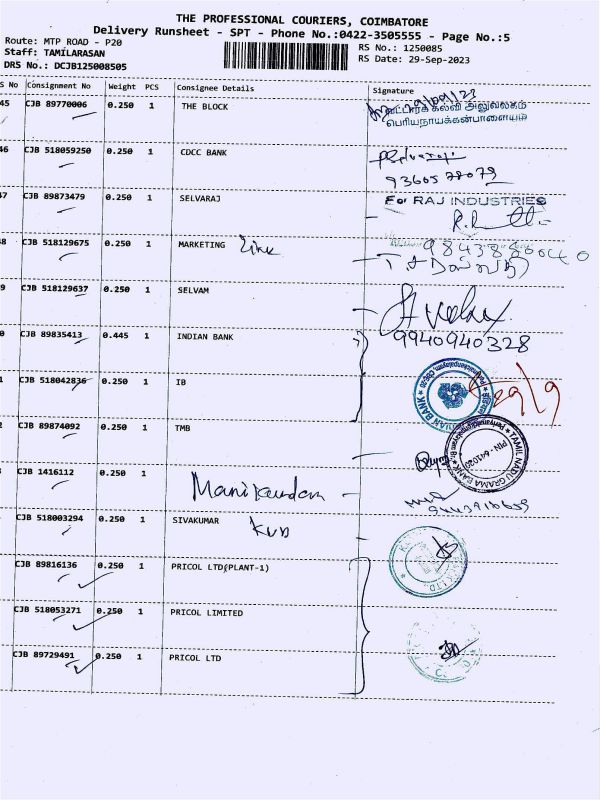 THE PROFESSIONAL COURIERS, COIMBATORE
Delivery Runsheet - SPT - Phone No.:0422-3505555 - Page No.:5
Route: MTP ROAD - P20
Staff: TAMILARASAN
DRS No.: DCJB125008505
RS No.: 1250085
RS Date: 29-Sep-2023
S No Consignment No Weight PCS Consignee Details Signature
45 CJB 89770006 0.250 1 THE BLOCK 29/09/23
வட்டாரக் கல்வி அலுவலகம்
பெரியநாயக்கன்பாளையம்
46 CJB 518059250 0.250 1 CDCC BANK
9360578079
47 CJB 89873479 0.250 1 SELVARAJ For RAJ INDUSTRIES
8 CJB 518129675 0.250 1 MARKETING
9 CJB 518129637 0.250 1 SELVAM
9940940328
0 CJB 89835413 0.445 1 INDIAN BANK
1 CJB 518042836 0.250 1 IB
INDIAN BANK
29/9
2 CJB 89874092 0.250 1 TMB
TAMIL NADU GRAMA BANK
PIN - 641020
3 CJB 1416112 0.250 1 Manikandan
CJB 518003294 0.250 1 SIVAKUMAR
KVB
CJB 89816136 0.250 1 PRICOL LTD(PLANT-1)
CJB 518053271 0.250 1 PRICOL LIMITED
CJB 89729491 0.250 1 PRICOL LTD